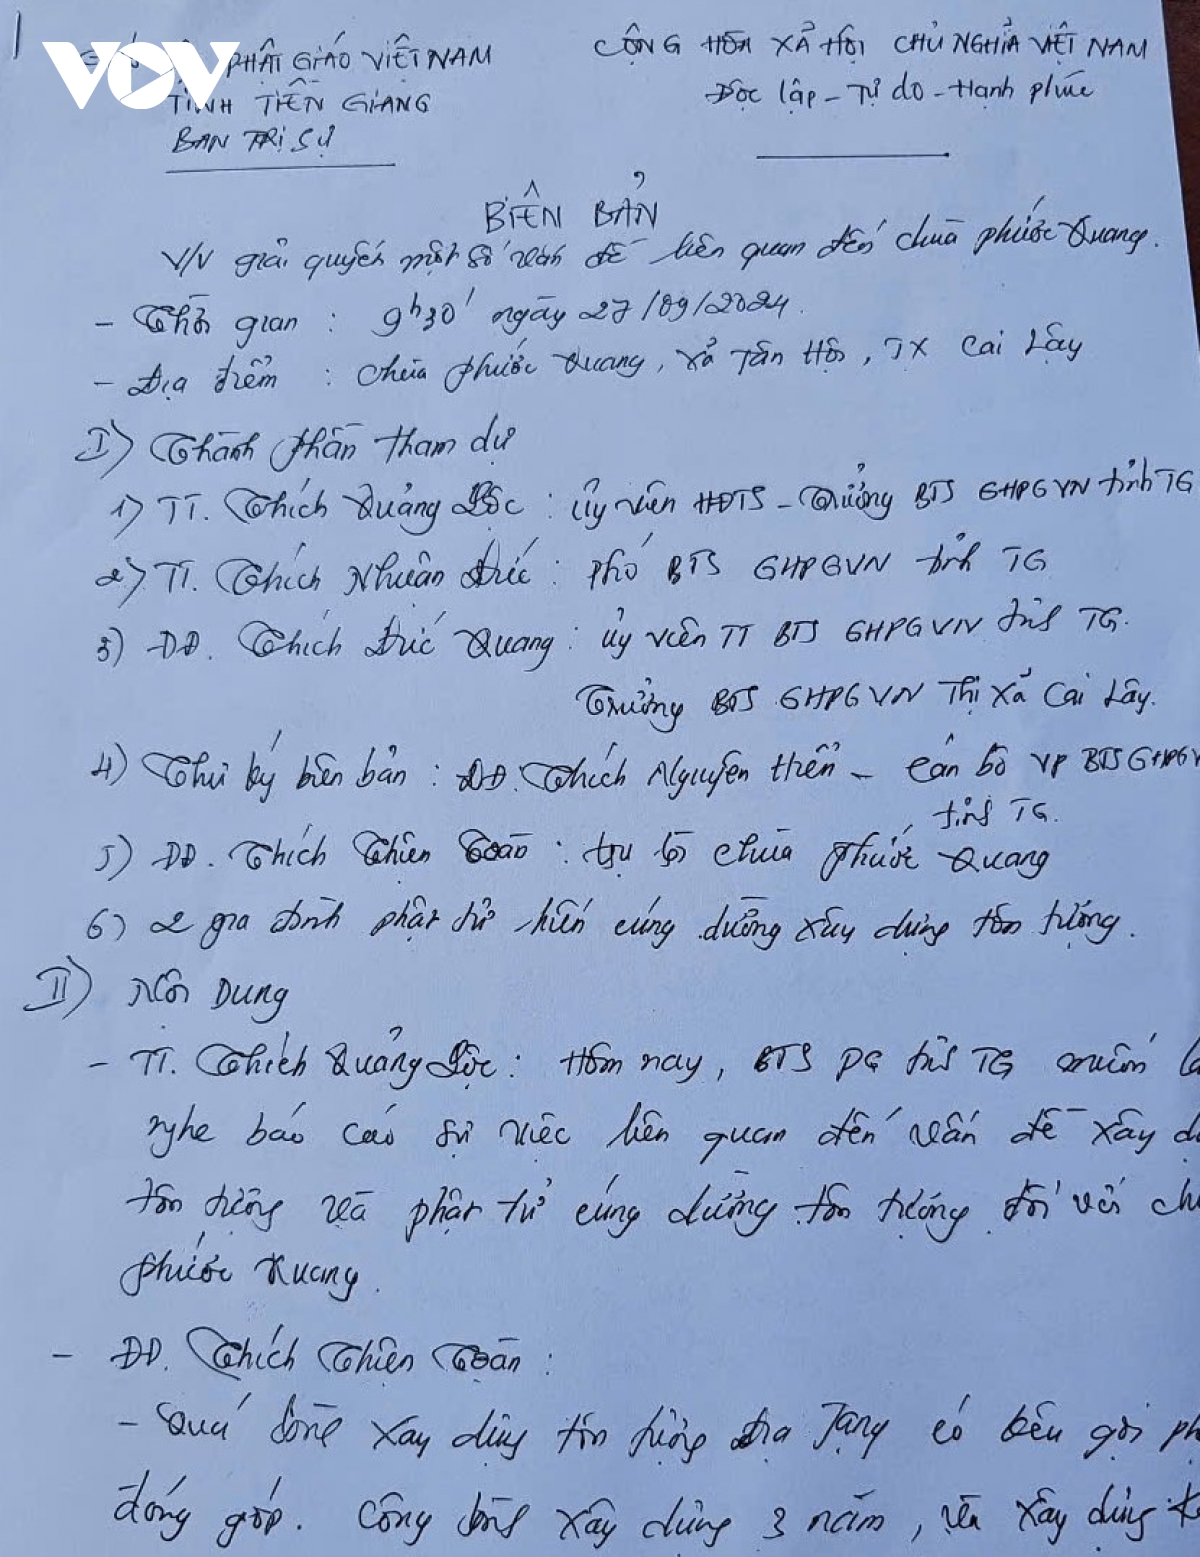 VOV
PHẬT GIÁO VIỆT NAM
TỈNH TIỀN GIANG
BAN TRỊ SỰ
CỘNG HÒA XÃ HỘI CHỦ NGHĨA VIỆT NAM
Độc lập - Tự do - Hạnh phúc
BIÊN BẢN
V/v giải quyết một số vấn đề liên quan đến chùa Phước Quang.
- Thời gian : 9h30' ngày 27/09/2024.
- Địa điểm : Chùa Phước Quang, xã Tân Hội, TX Cai Lậy
I) Thành phần tham dự
1) TT. Thích Quảng Lộc : Ủy viên HĐTS - Trưởng BTS GHPGVN tỉnh TG
2) TT. Thích Nhuận Đức : Phó BTS GHPGVN tỉnh TG
3) ĐĐ. Thích Đức Quang : Ủy viên TT BTS GHPGVN tỉnh TG.
Trưởng BTS GHPGVN Thị xã Cai Lậy.
4) Thư ký biên bản : ĐĐ. Thích Nguyên Thiền - Cán bộ VP BTS GHPGV
tỉnh TG.
5) ĐĐ. Thích Thiện Toàn : trụ trì chùa Phước Quang
6) 2 gia đình phật tử hiến cúng dường xây dựng tôn tượng.
II) Nội Dung
- TT. Thích Quảng Lộc : Hôm nay, BTS PG tỉnh TG muốn
nghe báo cáo sự việc liên quan đến vấn đề xây
tôn tượng và phật tử cúng dường tôn tượng đối với
Phước Quang.
- ĐĐ. Thích Thiện Toàn :
- Quá trình xây dựng tôn tượng Địa Tạng có kêu gọi
đóng góp. Công trình xây dựng 3 năm, và xây dựng